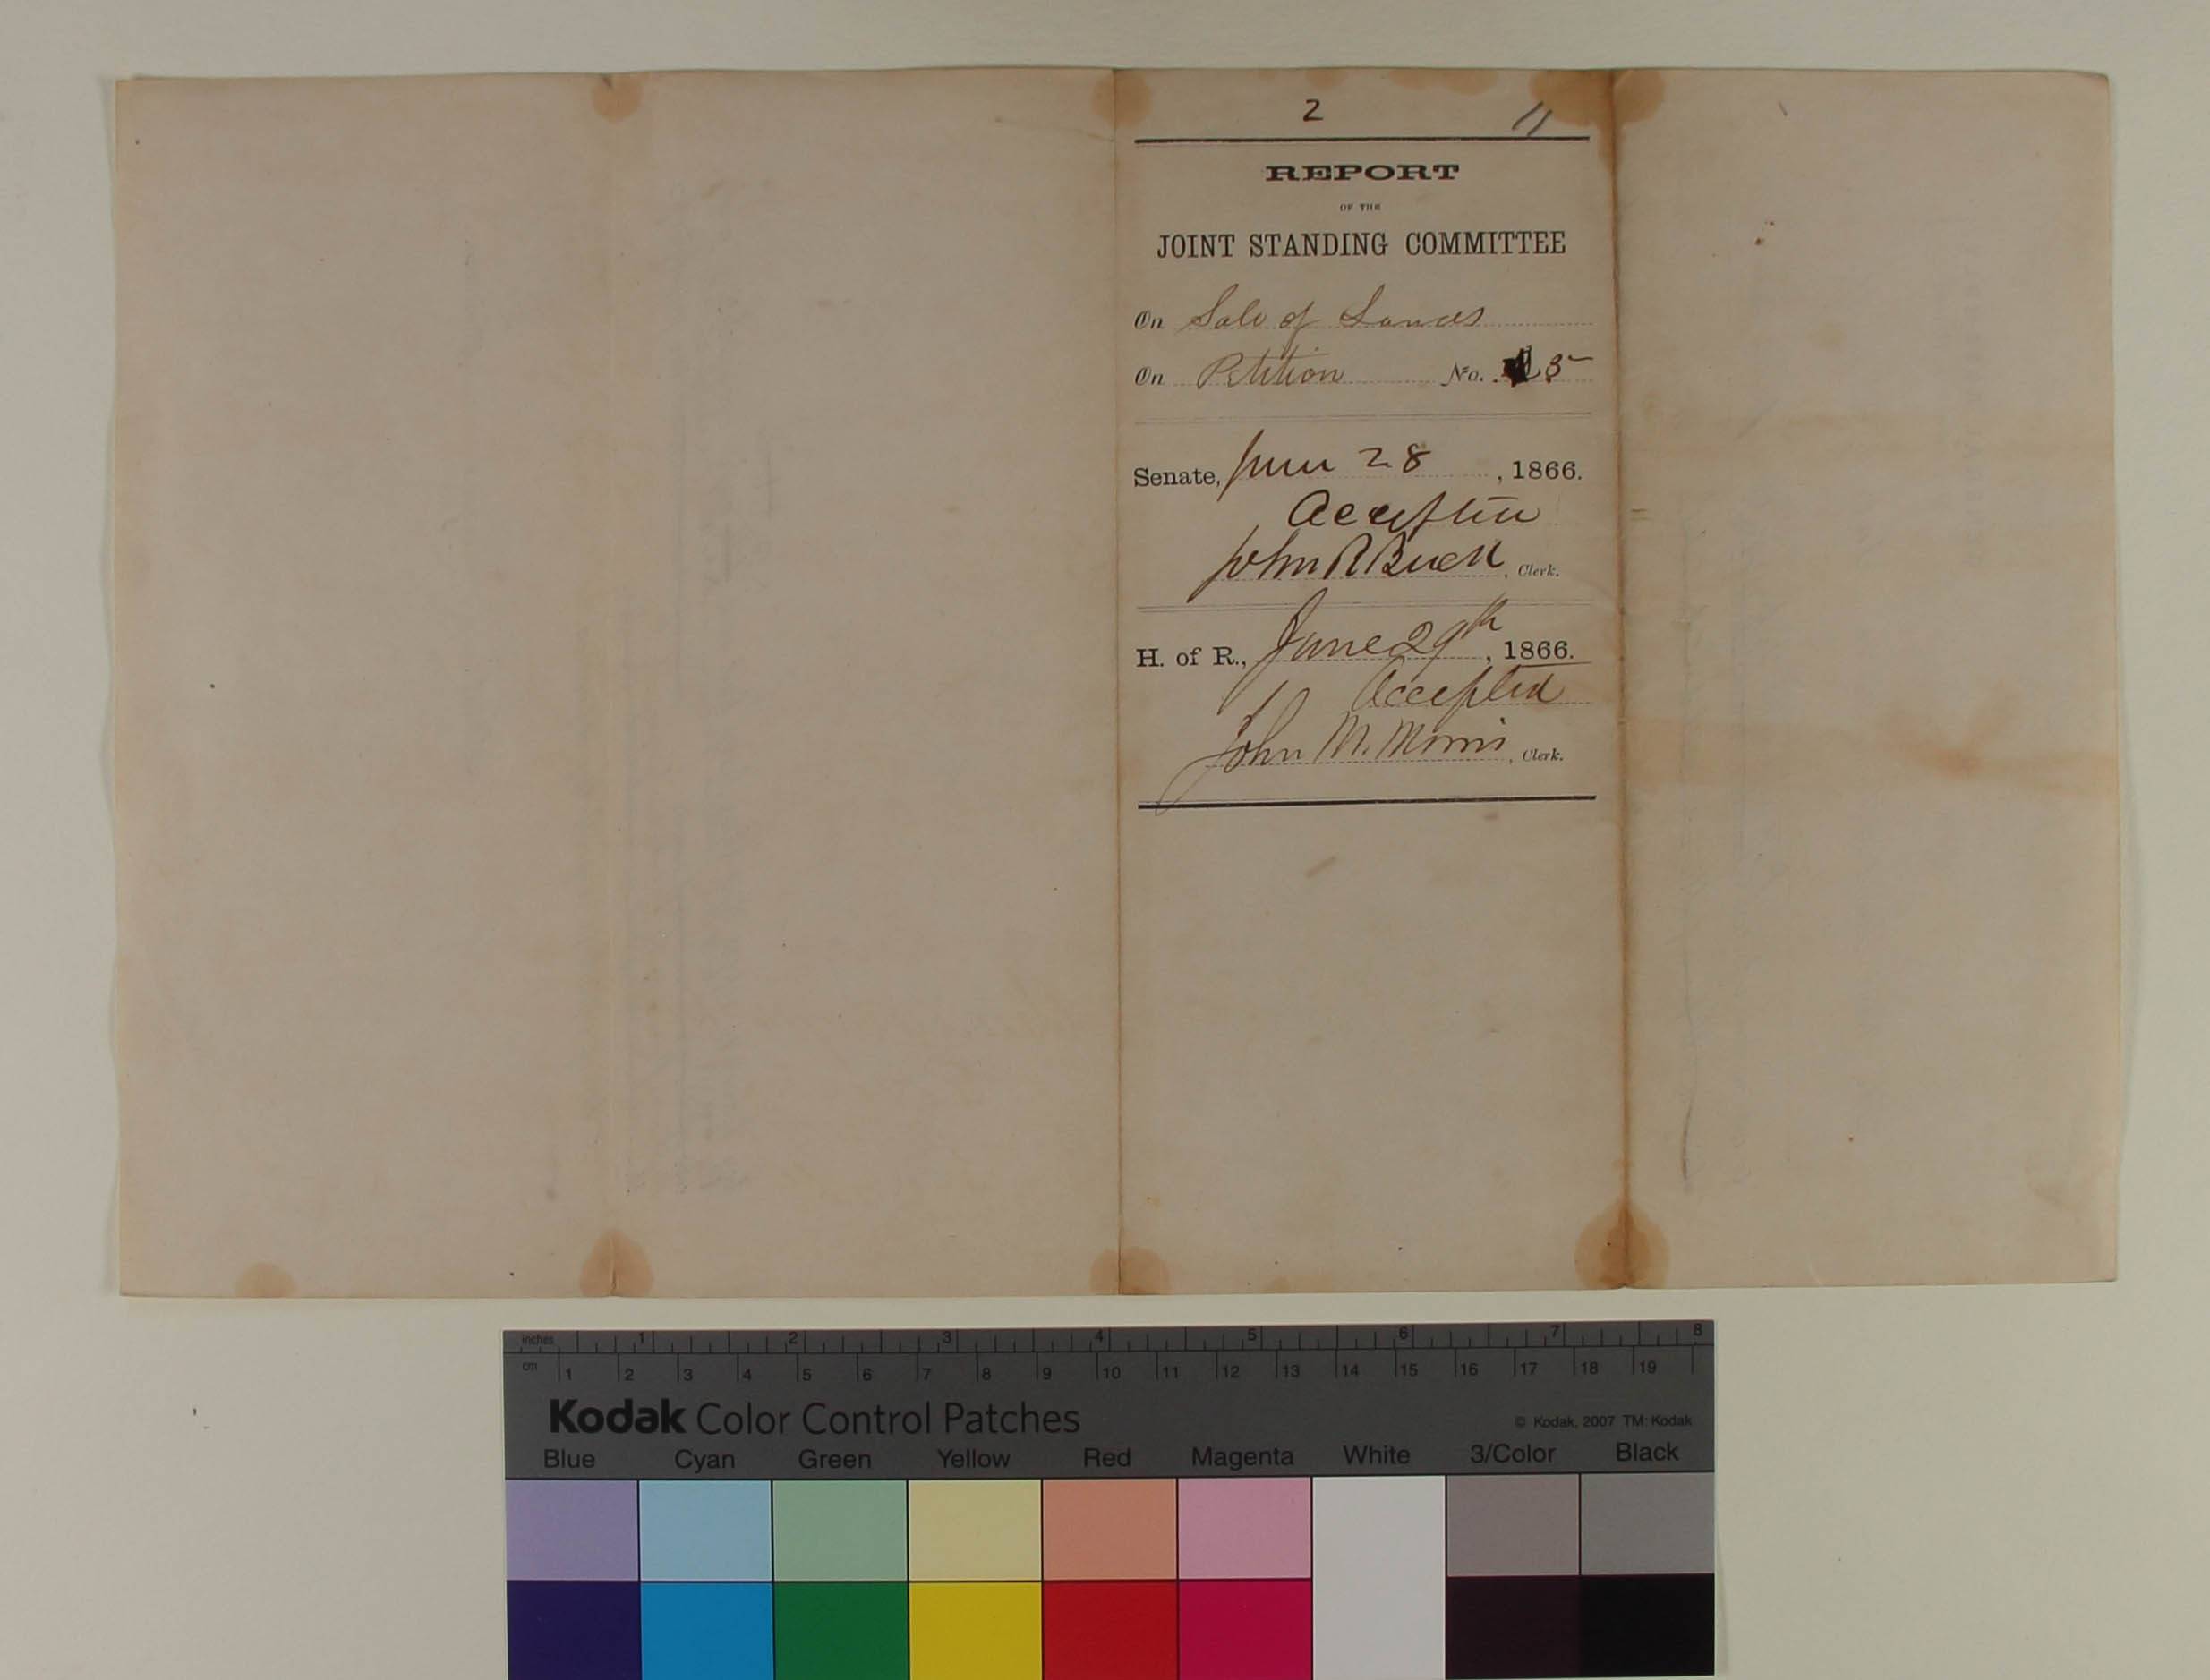 2 11
REPORT
OF THE
JOINT STANDING COMMITTEE
On Sale of Lands
On Petition No. 5
Senate, June 28, 1866.
Accepted
John R Buck, Clerk.
H. of R., June 29th, 1866.
Accepted
John M. Morris, Clerk.
inches 1 2 3 4 5 6 7 8
cm 1 2 3 4 5 6 7 8 9 10 11 12 13 14 15 16 17 18 19
Kodak Color Control Patches © Kodak, 2007 TM: Kodak
Blue Cyan Green Yellow Red Magenta White 3/Color Black